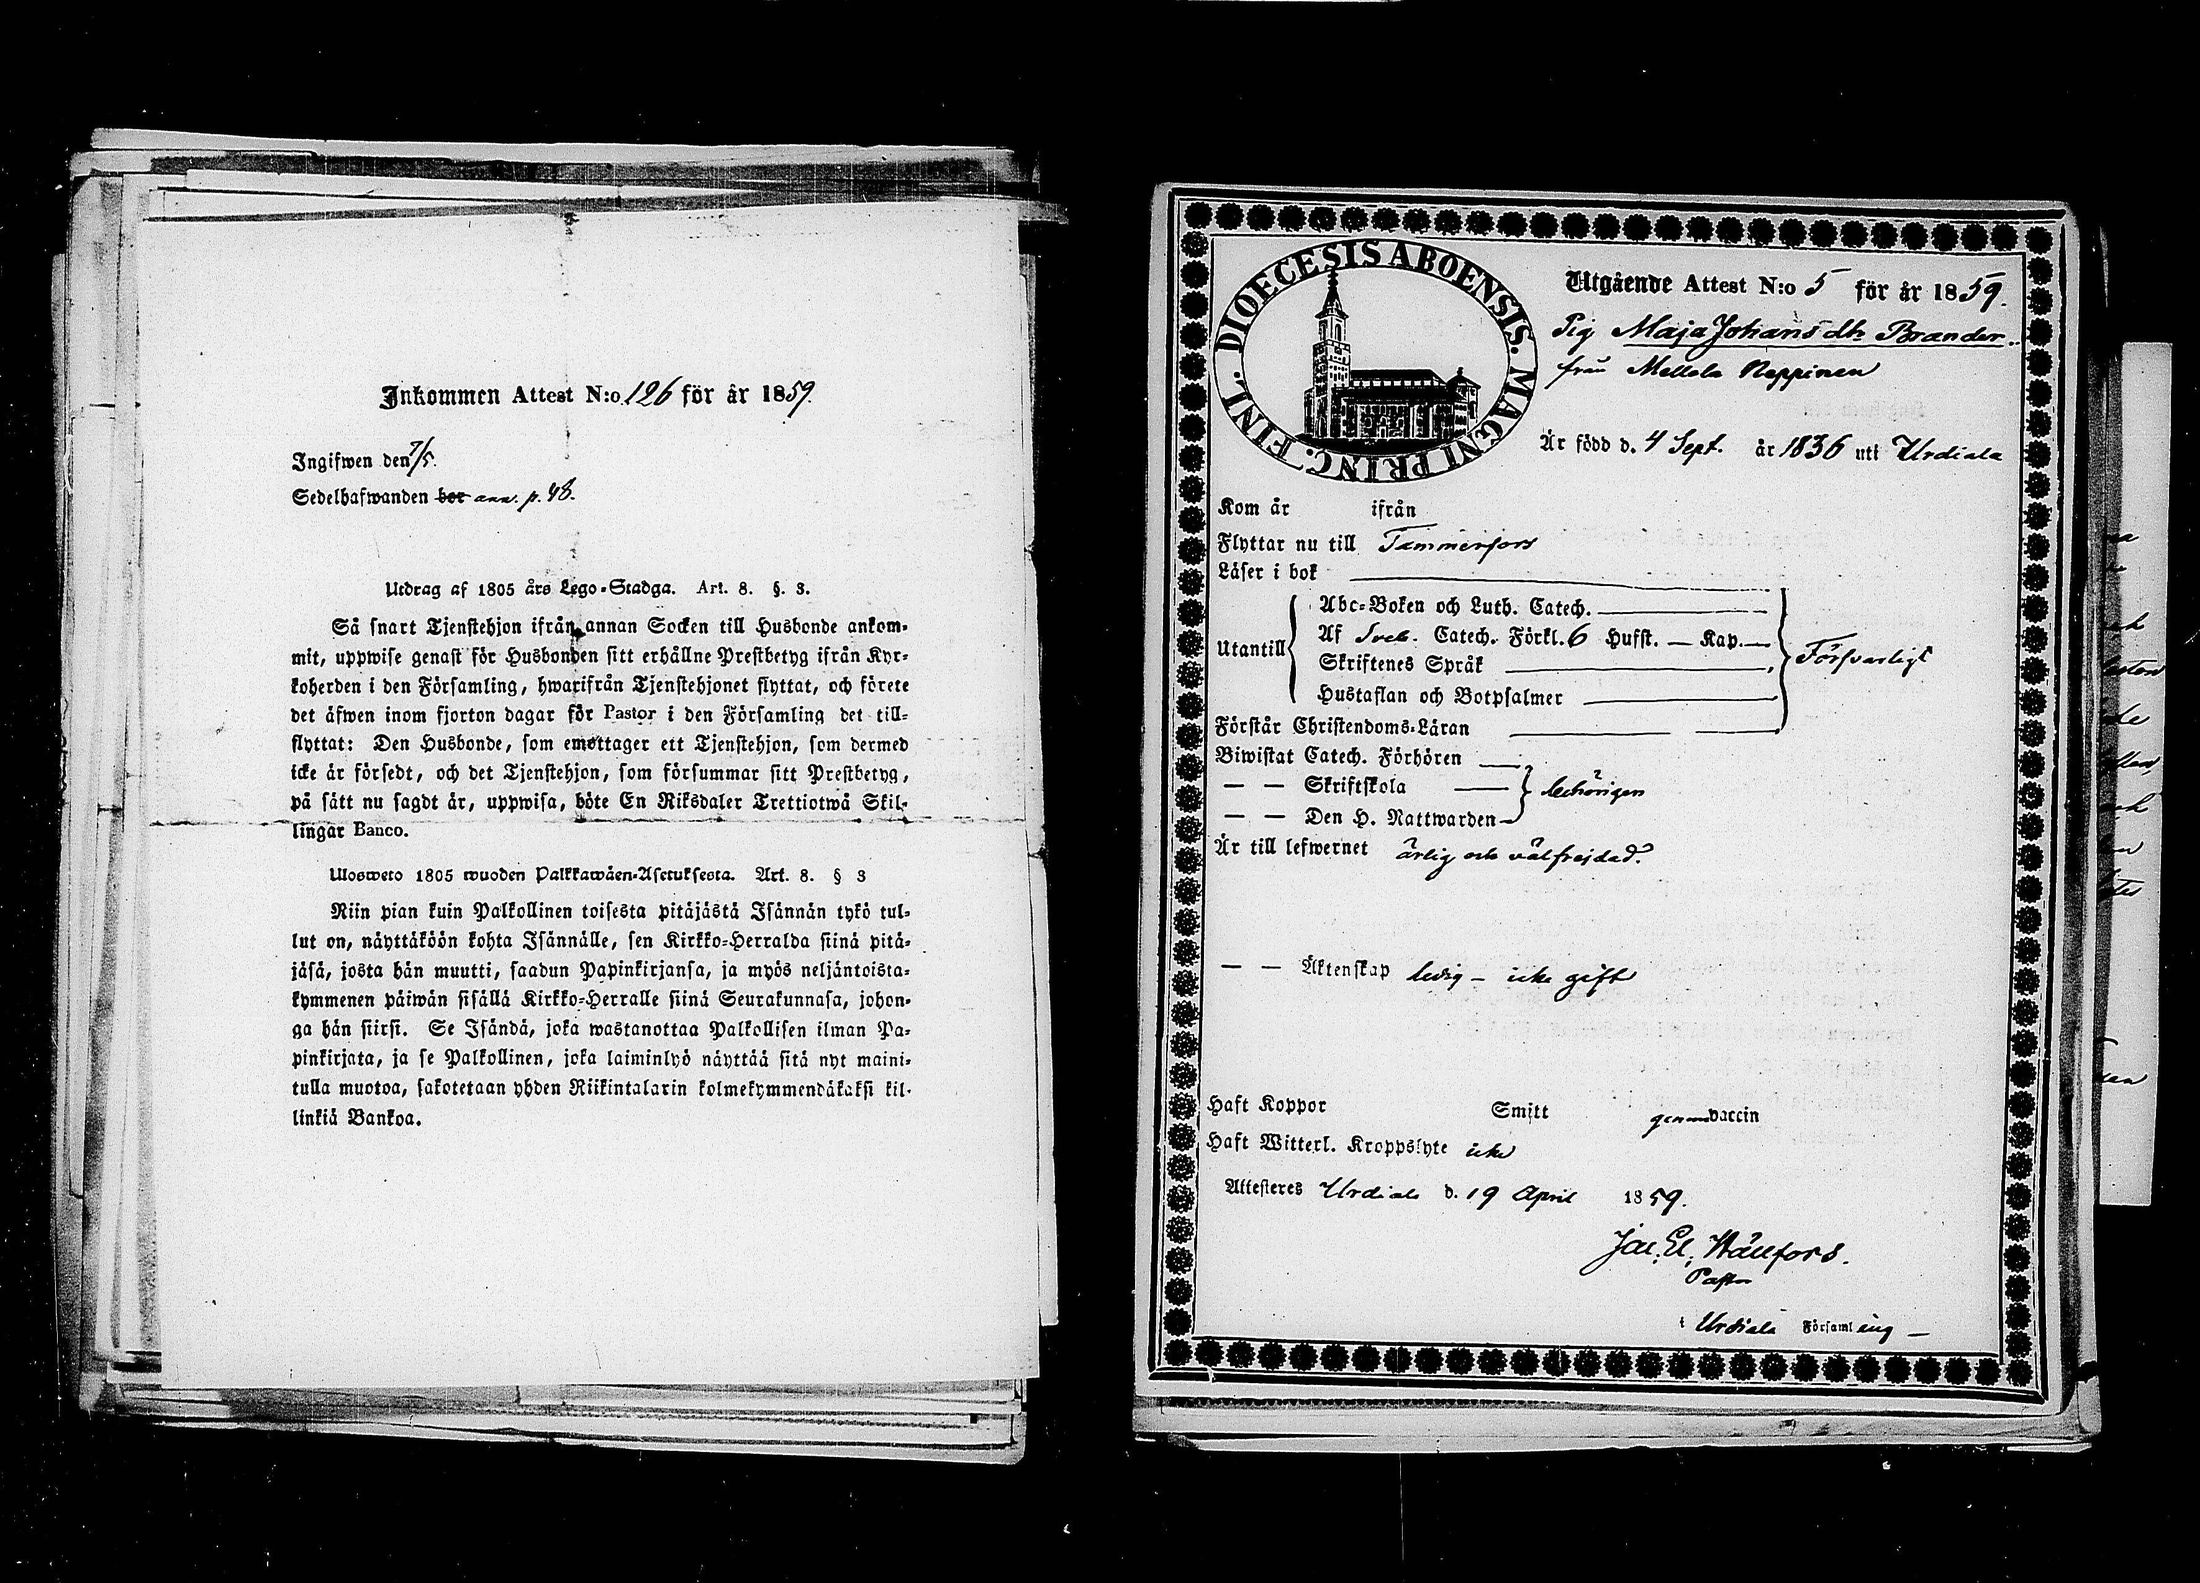 Inkommen Attest N:o 126 för år 1859.
Ingifwen den 7/5.
Sedelhafwanden bor ann. p. 48.
Utdrag af 1805 års Lego-Stadga. Art. 8. §. 3.
Så snart Tjenstehjon ifrån annan Socken till Husbonde ankom-
mit, uppwise genast för Husbonden sitt erhållne Prestbetyg ifrån Kyr-
koherden i den Församling, hwarifrån Tjenstehjonet flyttat, och förete
det äfwen inom fjorton dagar för Pastor i den Församling det till-
flyttat: Den Husbonde, som emottager ett Tjenstehjon, som dermed
icke är försedt, och det Tjenstehjon, som försummar sitt Prestbetyg,
på sätt nu sagdt är, uppwisa, böte En Riksdaler Trettiotwå Skil-
lingar Banco.
Ulosweto 1805 wuoden Palkkawäen-Asetuksesta. Art. 8. § 3
Niin pian kuin Palkollinen toisesta pitäjästä Isännän tykö tul-
lut on, näyttäköön kohta Isännälle, sen Kirkko-Herralda siinä pitä-
jäsä, josta hän muutti, saadun Papinkirjansa, ja myös neljäntoista-
kymmenen päiwän sisällä Kirkko-Herralle siinä Seurakunnasa, johon-
ga hän siirsi. Se Isändä, joka wastanottaa Palkollisen ilman Pa-
pinkirjata, ja se Palkollinen, joka laiminlyö näyttää sitä nyt maini-
tulla muotoa, sakotetaan yhden Riikintalarin kolmekymmendäkaksi kil-
linkiä Bankoa.
DIOECESIS ABOENSIS. MAGNI PRINC. FINL.
Utgående Attest N:o 5 för år 1859.
Pig Maja Johans dtr Brander
från Mellola Nappinen
Är född d. 4 Sept. år 1836 uti Urdiala
Kom år ifrån
Flyttar nu till Tammerfors
Läser i bok
Utantill
Abc-Boken och Luth. Catech.
Af Sveb. Catech. Förkl. 6 Hufst. — Kap. —
Skriftenes Språk
Hustaflan och Botpsalmer
Försvarligt
Förstår Christendoms-Läran
Biwistat Catech. Förhören
— — Skriftskola
— — Den H. Nattwarden
behörigen
Är till lefwernet ärlig och välfrejdad.
— — Äktenskap ledig — icke gift
Haft Koppor Smitt genom vaccin
Haft Witterl. Kroppslyte icke
Attesteres Urdiala d. 19 April 1859.
Jac. El. Hällfors.
Pastor
i Urdiala Församling —